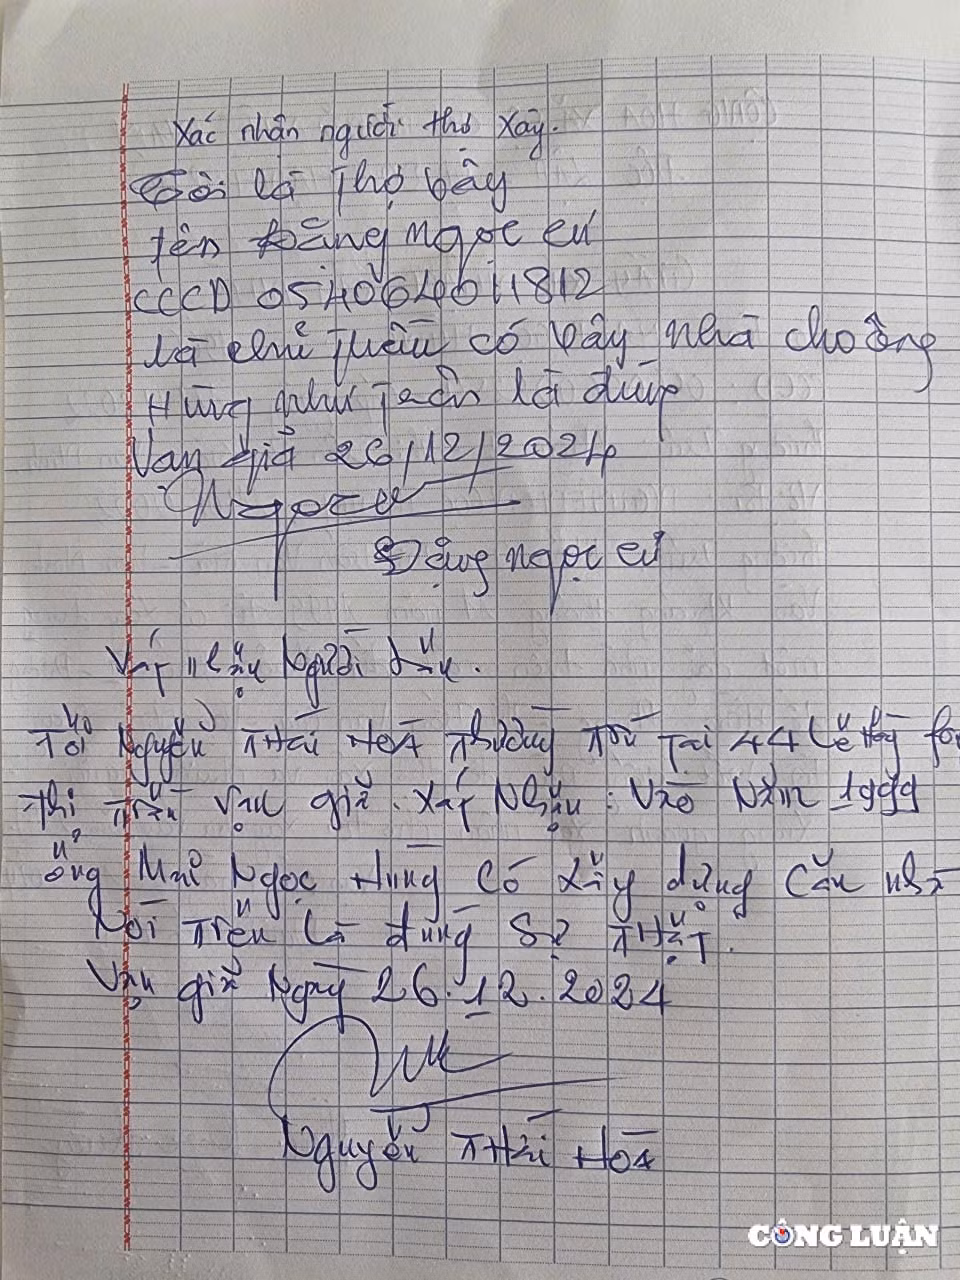 Xác nhận người thợ xây.
Tôi là Thợ bây
tên Đặng ngọc cư
CCCD 054064011812
là chủ thầu có bây nhà cho ông
Hùng như là đúng
Vạn giã 26/12/2024
Ngọc cư
Đặng ngọc cư
Xác nhận Người dân.
Tôi Nguyễn Thái Hoà Thường Trú Tại 44 Lê Hồng
Thị Trấn Vạn giã. Xác Nhận: Vào Năm 1999
ông Mai Ngọc Hùng Có Xây dựng Căn nhà
Nói Trên Là đúng Sự Thật.
Vạn giã Ngày 26.12.2024
Nguyễn Thái Hoà
CÔNG LUẬN